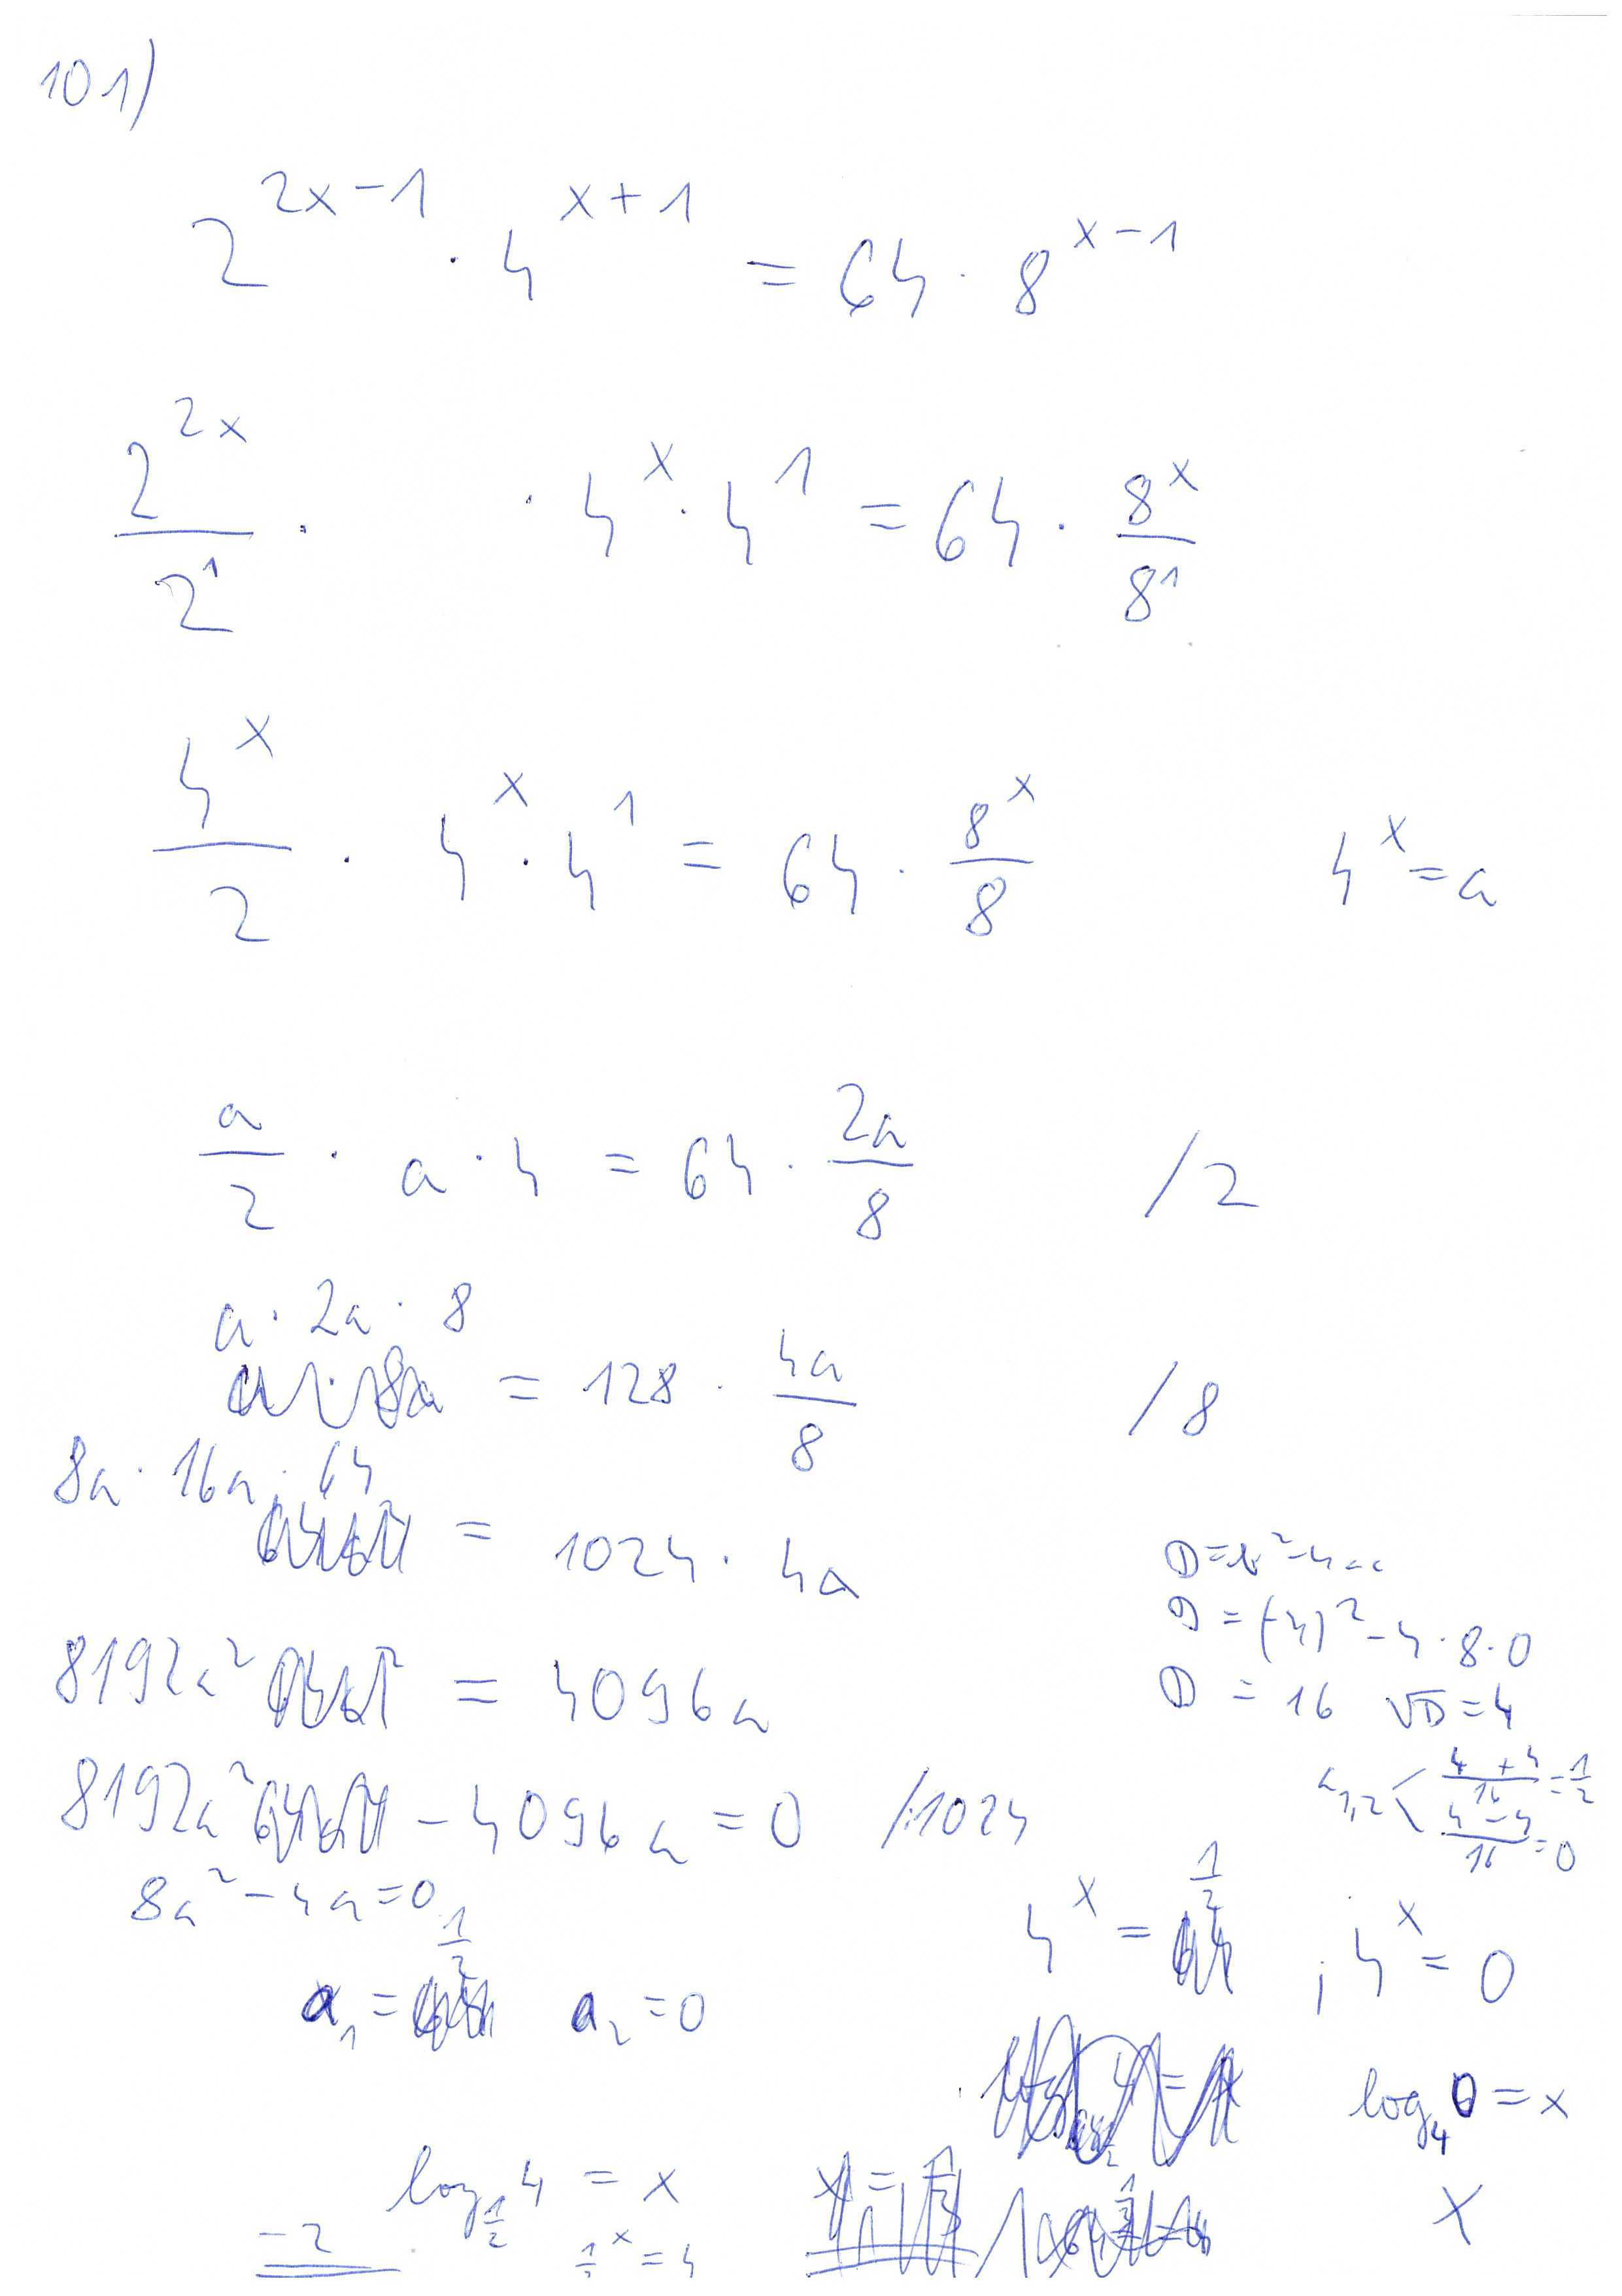 101)
2^(2x-1) · 4^(x+1) = 64 · 8^(x-1)
2^(2x)/2^1 · · 4^x · 4^1 = 64 · 8^x/8^1
4^x/2 · 4^x · 4^1 = 64 · 8^x/8 4^x = a
a/2 · a · 4 = 64 · 2a/8 /2
a · 2a · 8 = 128 · 4a/8 /8
8a · 16a · 64 = 1024 · 4a
8192a² = 4096a
8192a² - 4096a = 0 /:1024
8a² - 4a = 0
a₁ = 1/2 a₂ = 0
D = b² - 4ac
D = (-4)² - 4 · 8 · 0
D = 16 √D = 4
a₁,₂ < (4+4)/16 = 1/2
(4-4)/16 = 0
4^x = 1/2 ; 4^x = 0
log₄ 0 = x
log_(1/2) 4 = x X
-2 1/2^x = 4